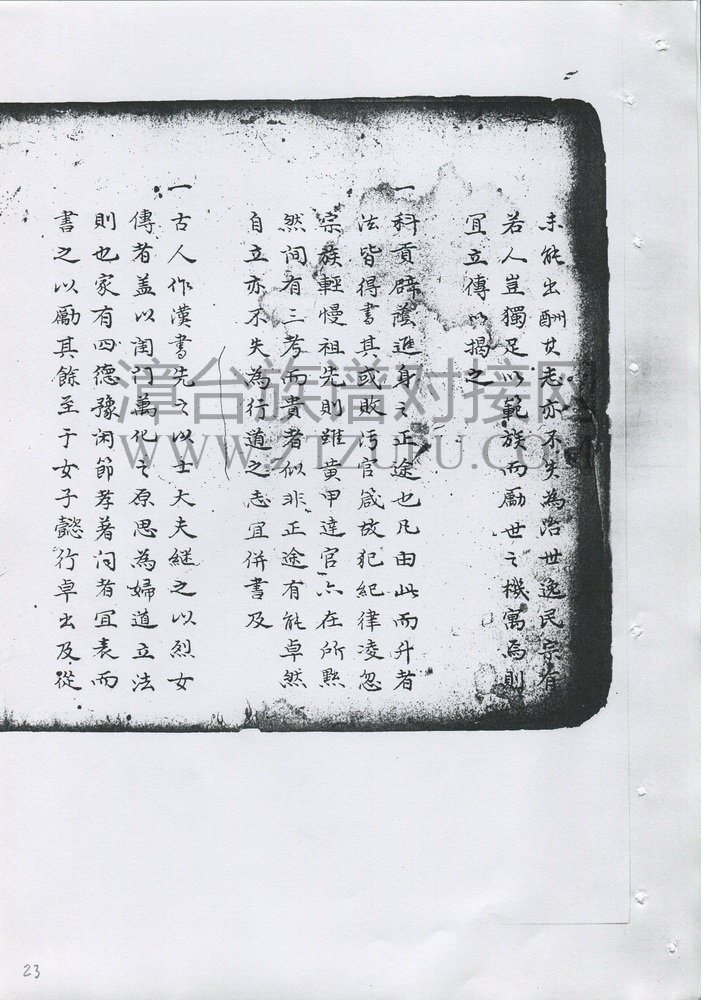 未能出酬其志亦不失為治世逸民宗有
若人豈獨足以範族而勵世之機寓焉則
宜立傳以揭之
一科貢辟蔭進身之正途也凡由此而升者
法皆得書其或敗污官箴故犯紀律凌忽
宗族輕慢祖先則雖黄甲達官亦在所黜
然间有三考而貴者似非正途有能卓然
自立亦不失為行道之志宜併書及
一古人作漢書先之以士大夫継之以烈女
傳者盖以闺门萬化之原思為婦道立法
則也家有四德豫闲節孝著闻者宜表而
書之以勵其餘至于女子懿行卓出及從
漳台族谱对接网
WWW.ZTZUPU.COM
23